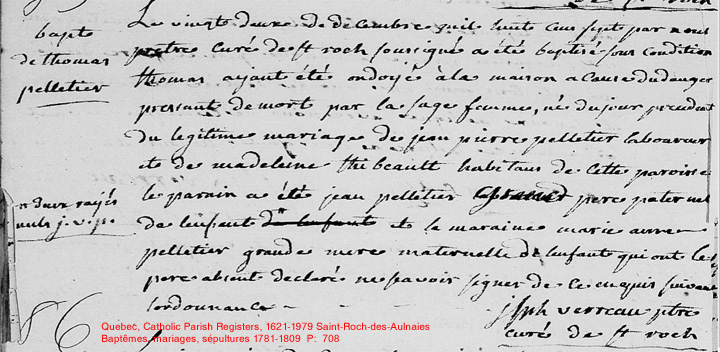 bapte
de thomas
pelletier
Le vingt deux de decembre mil huit cens sept par nous
pretre curé de st roch soussigné a été baptisé sous condition
thomas ayant été ondoyé à la maison a cause du danger
pressant de mort par la sage femme, né du jour precedent
du legitime mariage de jean pierre pelletier laboureur
et de madeleine thibeault habitans de cette paroisse
le parain a été jean pelletier grand pere paternel
de lenfant de lenfant et la maraine marie anne
pelletier grande mere maternelle de lenfant qui ont le
pere absent declaré ne savoir signer de ce enquis suivant
lordonnance
mots rayés
nuls j. v. p.
jsph verreau ptre
curé de st roch
Quebec, Catholic Parish Registers, 1621-1979 Saint-Roch-des-Aulnaies
Baptêmes, mariages, sépultures 1781-1809 P: 708